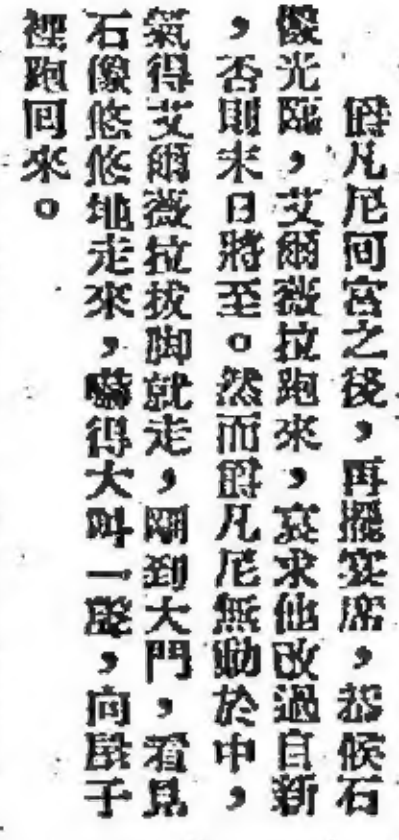 爵凡尼回宮之後，再擺宴席，恭候石
像光臨，艾爾薇拉跑來，哀求他改過自新
，否則末日將至。然而爵凡尼無動於中，
氣得艾爾薇拉拔脚就走，剛到大門，看見
石像悠悠地走來，嚇得大叫一聲，向屋子
裡跑回來。